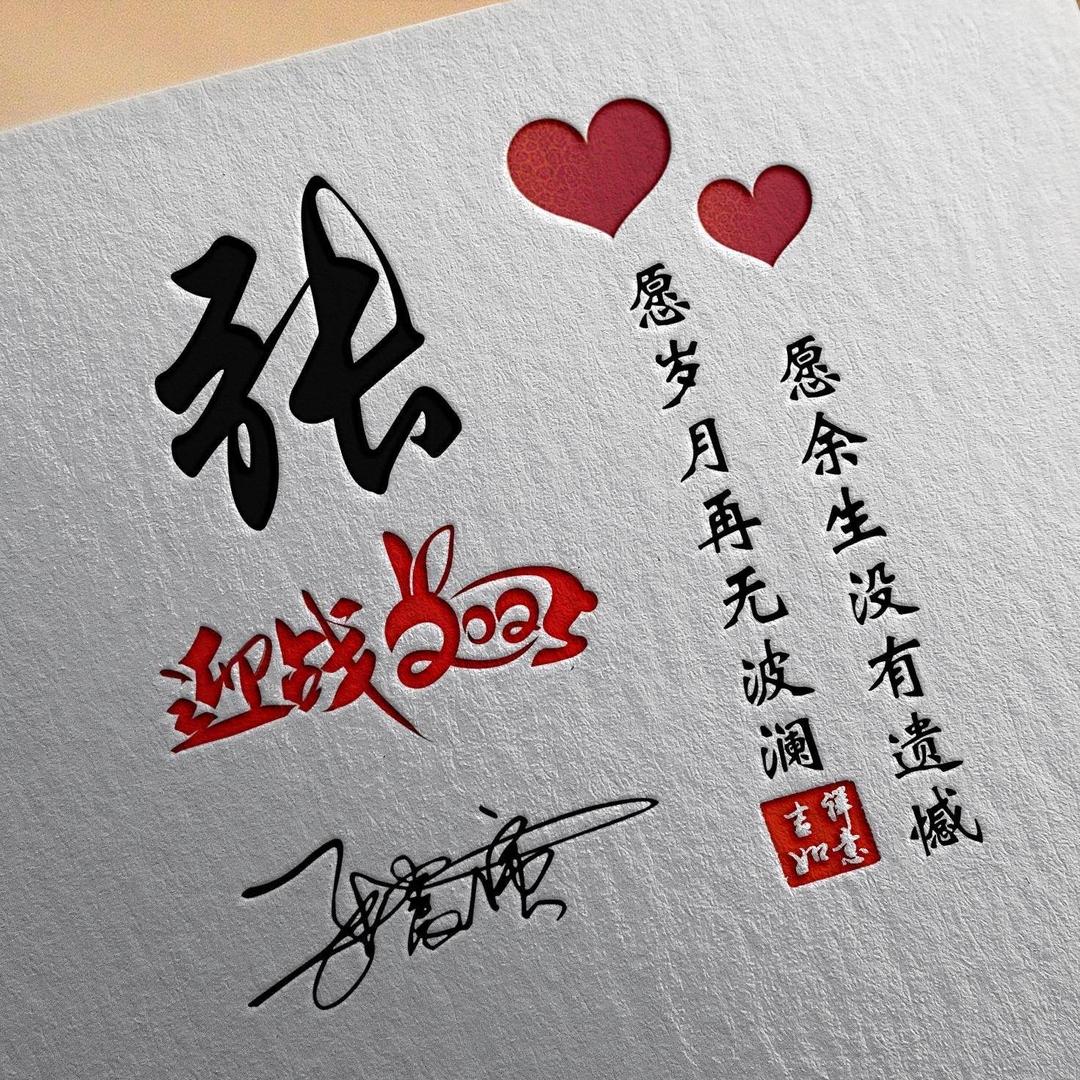 张
迎战2023
愿岁月再无波澜
愿余生没有遗憾
吉祥
如意